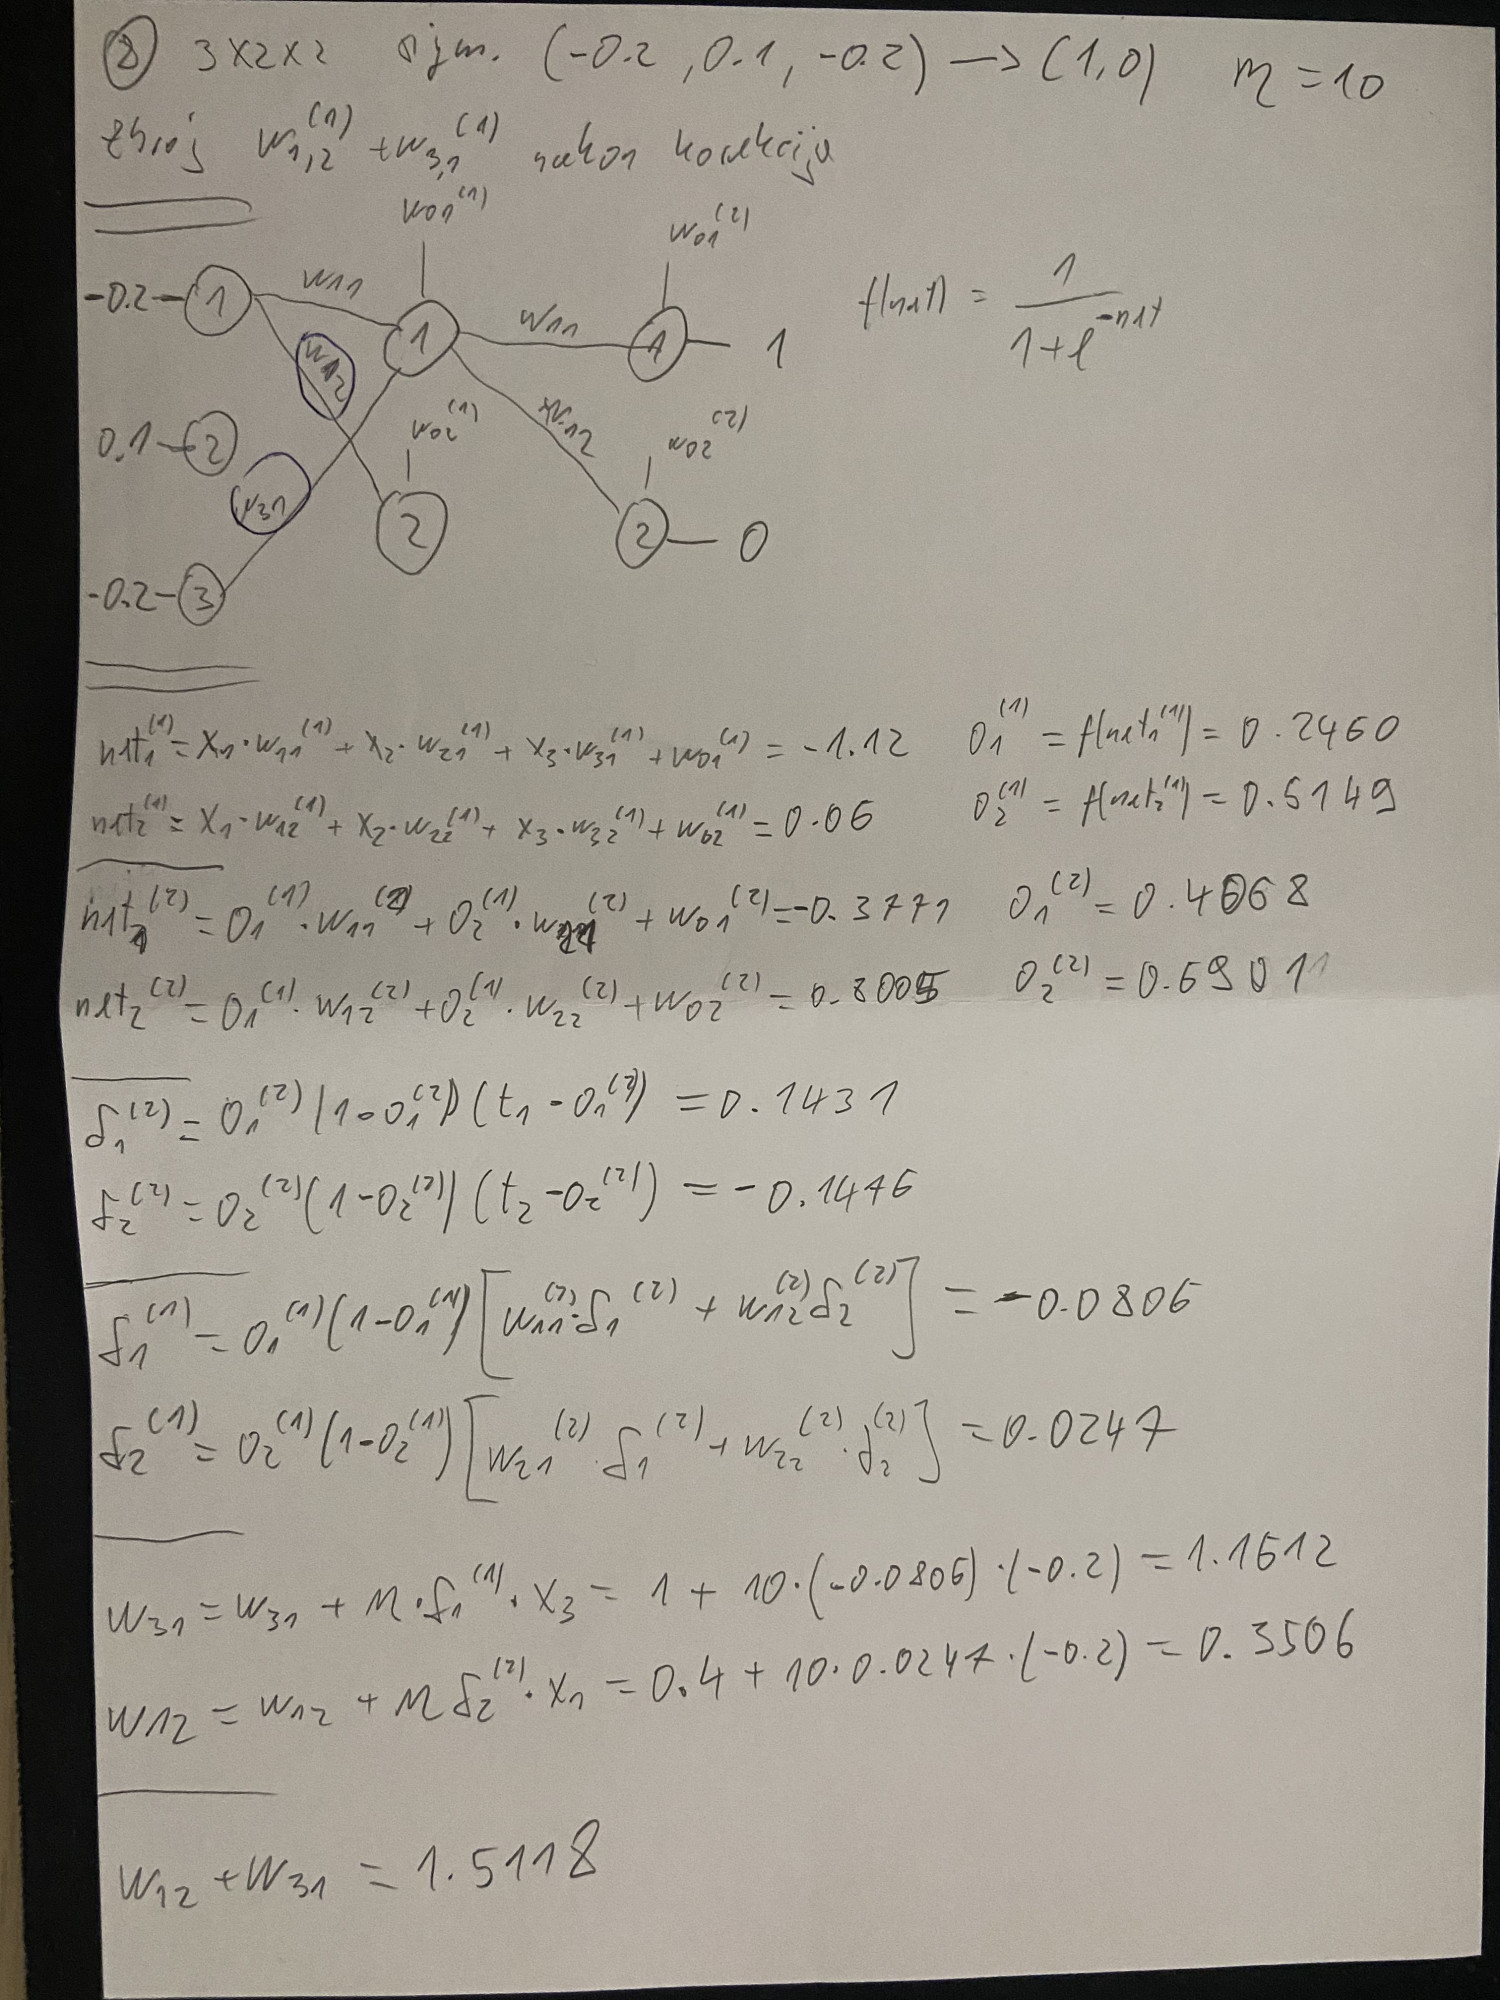 ② 3x2x2 sigm. (-0.2, 0.1, -0.2) → (1,0) η = 10
zbroj w₁,₂⁽¹⁾ + w₃,₁⁽¹⁾ nakon korekcija
w₀₁⁽¹⁾ w₀₁⁽²⁾
-0.2 – 1 w₁₁ 1 w₁₁ 1 – 1 f(net) = 1 / (1+e^(-net))
w₁₂ w₀₂⁽¹⁾ w₁₂ w₀₂⁽²⁾
0.1 – 2
w₃₁ 2 2 – 0
-0.2 – 3
net₁⁽¹⁾ = x₁·w₁₁⁽¹⁾ + x₂·w₂₁⁽¹⁾ + x₃·w₃₁⁽¹⁾ + w₀₁⁽¹⁾ = -1.12 O₁⁽¹⁾ = f(net₁⁽¹⁾) = 0.2460
net₂⁽¹⁾ = x₁·w₁₂⁽¹⁾ + x₂·w₂₂⁽¹⁾ + x₃·w₃₂⁽¹⁾ + w₀₂⁽¹⁾ = 0.06 O₂⁽¹⁾ = f(net₂⁽¹⁾) = 0.5149
net₁⁽²⁾ = O₁⁽¹⁾·w₁₁⁽²⁾ + O₂⁽¹⁾·w₂₁⁽²⁾ + w₀₁⁽²⁾ = -0.3771 O₁⁽²⁾ = 0.4068
net₂⁽²⁾ = O₁⁽¹⁾·w₁₂⁽²⁾ + O₂⁽¹⁾·w₂₂⁽²⁾ + w₀₂⁽²⁾ = 0.8005 O₂⁽²⁾ = 0.6901
δ₁⁽²⁾ = O₁⁽²⁾(1-O₁⁽²⁾)(t₁-O₁⁽²⁾) = 0.1431
δ₂⁽²⁾ = O₂⁽²⁾(1-O₂⁽²⁾)(t₂-O₂⁽²⁾) = -0.1476
δ₁⁽¹⁾ = O₁⁽¹⁾(1-O₁⁽¹⁾)[w₁₁⁽²⁾·δ₁⁽²⁾ + w₁₂⁽²⁾δ₂⁽²⁾] = -0.0806
δ₂⁽¹⁾ = O₂⁽¹⁾(1-O₂⁽¹⁾)[w₂₁⁽²⁾·δ₁⁽²⁾ + w₂₂⁽²⁾·δ₂⁽²⁾] = 0.0247
w₃₁ = w₃₁ + η·δ₁⁽¹⁾·x₃ = 1 + 10·(-0.0806)·(-0.2) = 1.1612
w₁₂ = w₁₂ + ηδ₂⁽²⁾·x₁ = 0.4 + 10·0.0247·(-0.2) = 0.3506
w₁₂ + w₃₁ = 1.5118